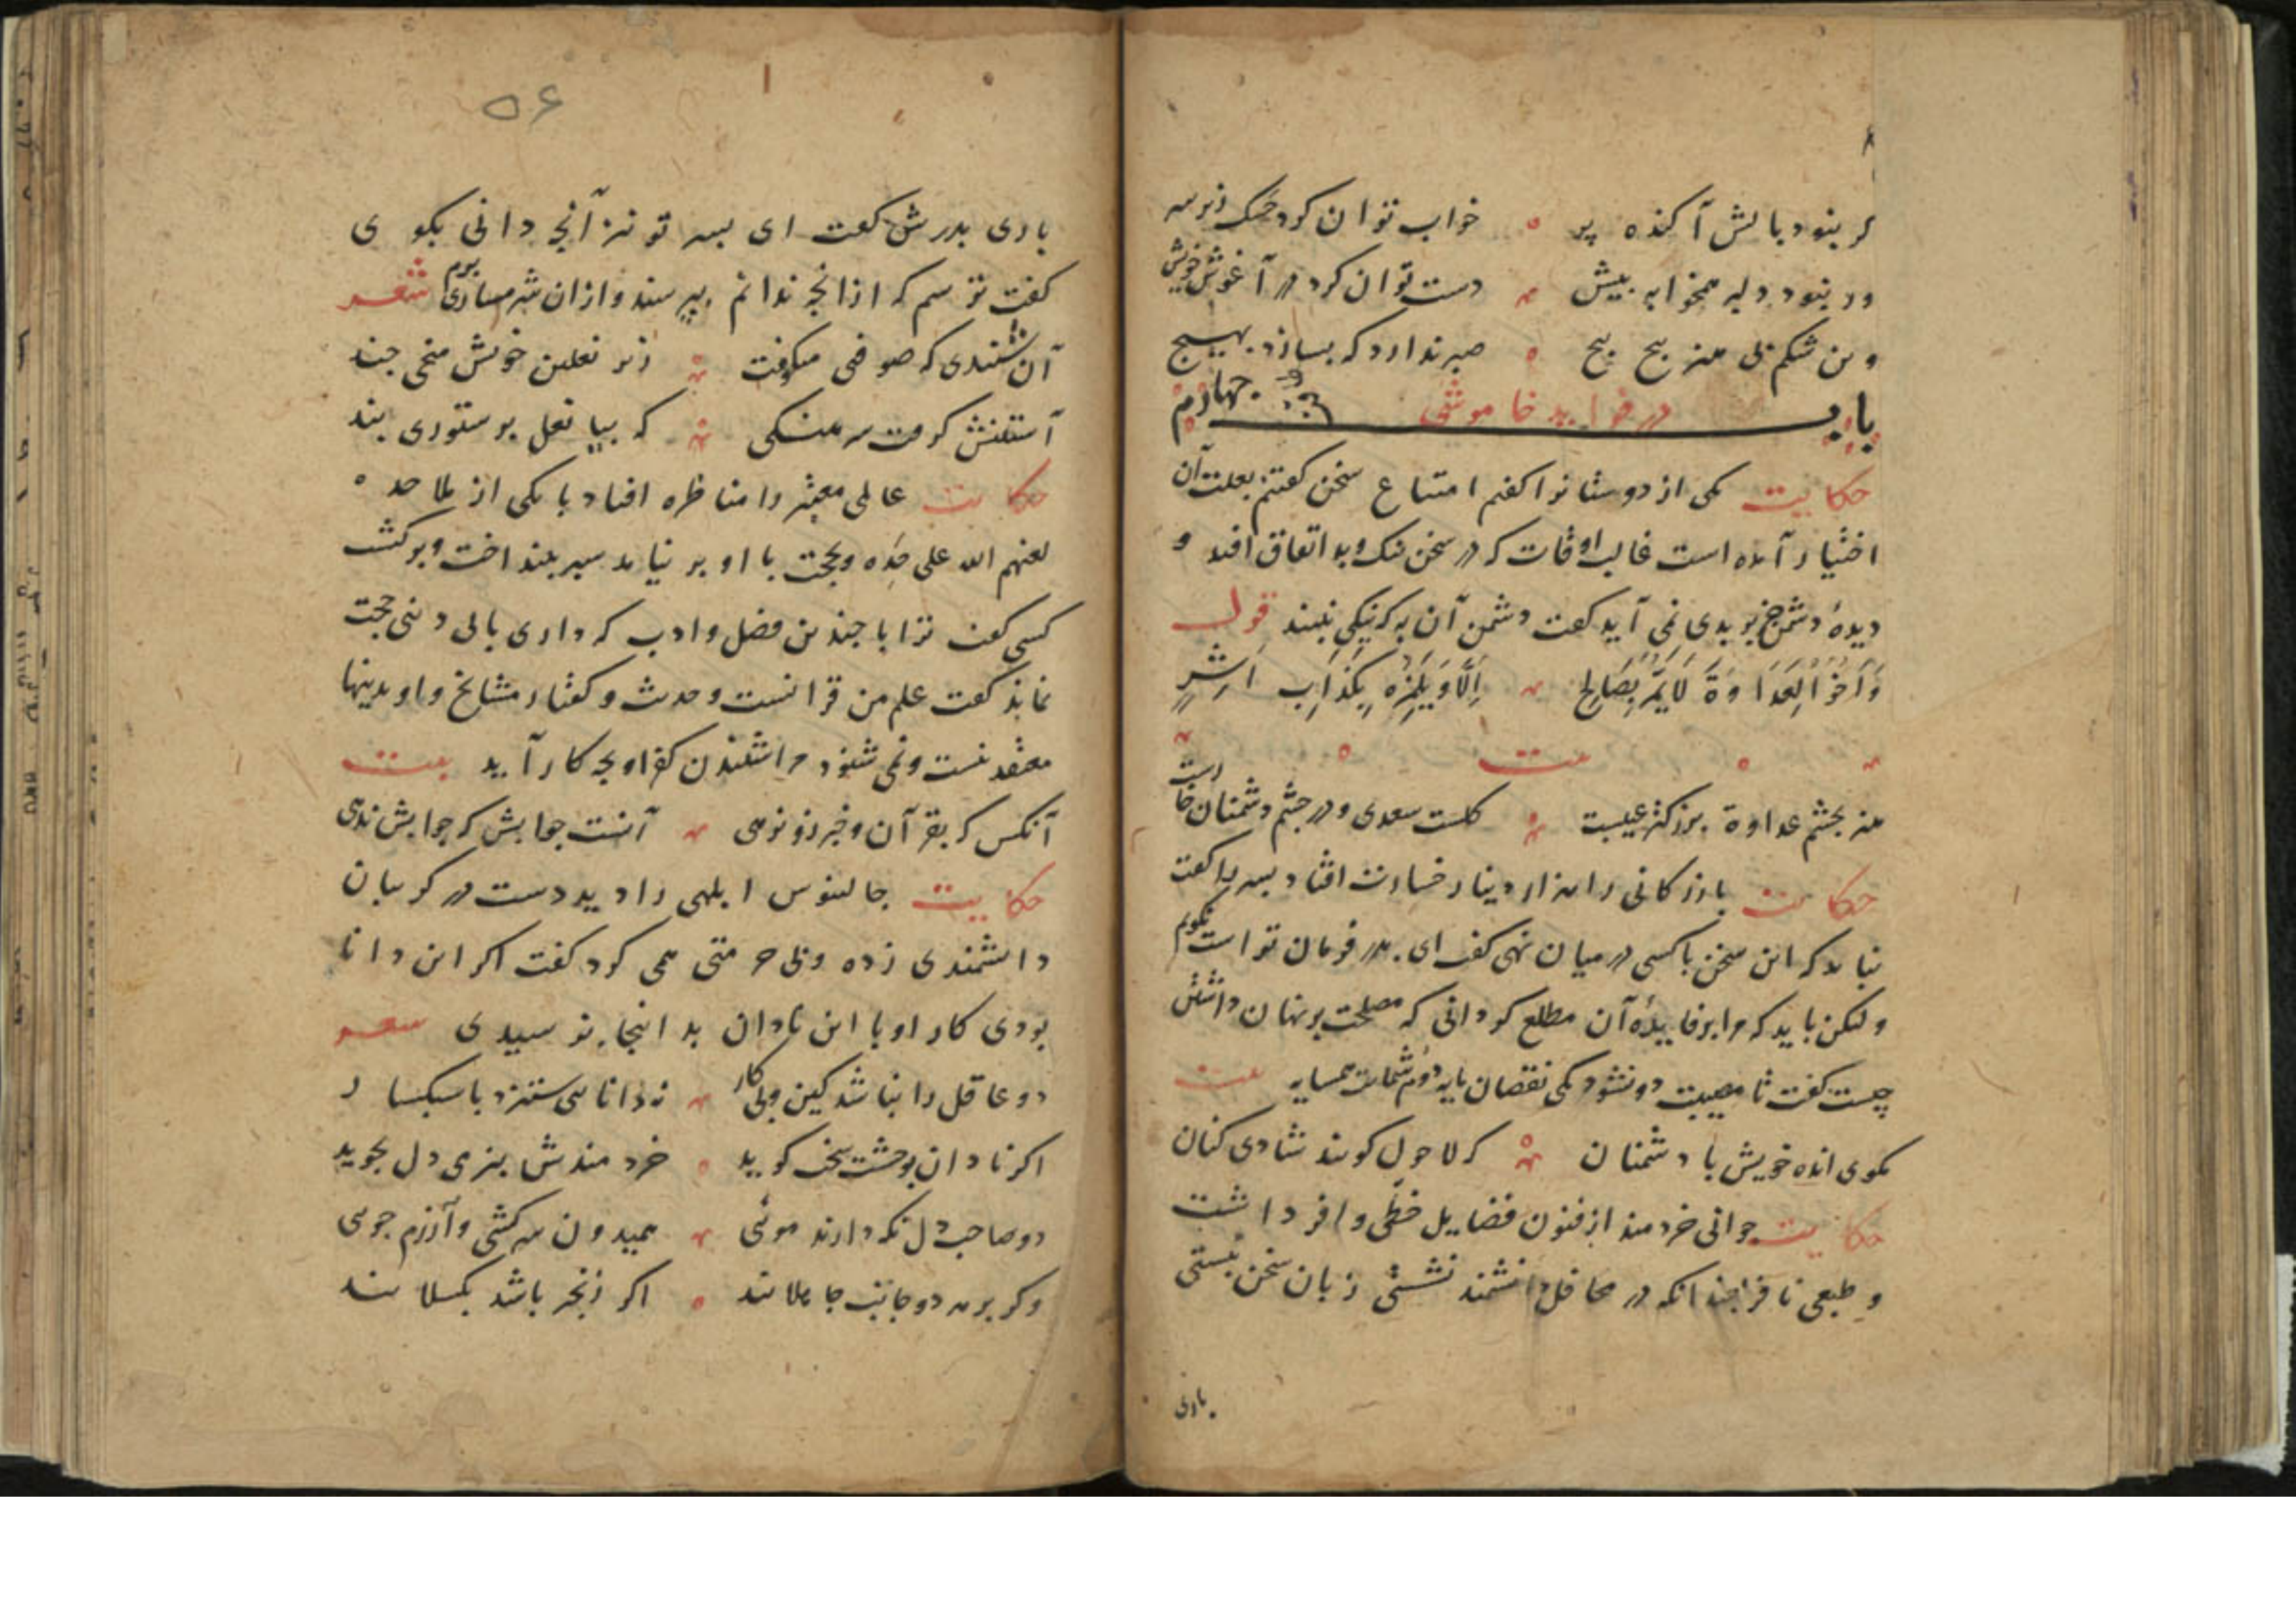 گر نبود بالش آکنده پر خواب توان کرد حجر زیر سر
ور نبود دلبر همخوابه پیش دست توان کرد در آغوش خویش
وین شکم بی هنر پیچ پیچ صبر ندارد که بسازد بهیچ
باب چهارم در فواید خاموشی
حکایت یکی از دوستانرا گفتم امتناع سخن گفتنم بعلت آن
اختیار آمده است غالب اوقات که در سخن نیک و بد اتفاق افتد و
دیدهٔ دشمن جز بر بدی نمی آید گفت دشمن آن به که نیکی نبیند قول
وَاَخُو الْعَدَاوَةِ لَا یَمُرُّ بِصَالِحٍ اِلَّا وَیَلْمِزُهُ بِکَذَّابٍ اَشِرٍ
بیت
هنر بچشم عداوة بزرگتر عیبست گلست سعدی و در چشم دشمنان خارست
حکایت بازرکانی را هزار دینار خسارت افتاد پسر را گفت
نباید که این سخن با کسی در میان نهی گفت ای پدر فرمان تراست نگویم
ولیکن باید که مرا بر فایدهٔ آن مطلع گردانی که مصلحت پنهان داشتن
چیست گفت تا مصیبت دو نشود یکی نقصان مایه دوم شماتت همسایه بیت
مکوی انده خویش با دشمنان که لا حول کویند شادی کنان
حکایت جوانی خردمند از فنون فضایل حظی وافر داشت
و طبعی نافر چندانکه در محافل دانشمند نشستی زبان سخن ببستی
باری
۵۶
باری پدرش گفت ای پسر تو نیز آنچه دانی بکوی
گفت ترسم که از آنچه ندانم بپرسند و از آن شرمساری برم شعر
آن شنیدی که صوفی میکوفت زیر نعلین خویش میخی چند
آستینش گرفت سرهنگی که بیا نعل بر ستوری بند
حکایت عالمی معتبر را مناظره افتاد با یکی از ملاحده
لعنهم الله علی حده و بحجت با او بر نیامد سپر بینداخت و برگشت
کسی گفت ترا با چندین فضل و ادب که داری با بی دینی حجت
نماند گفت علم من قرانست و حدیث و گفتار مشایخ و او بدینها
معتقد نیست و نمی شنود مرا شنیدن کفر او بچه کار آید بیت
آنکس که بقرآن و خبر زو نرهی آنست جوابش که جوابش ندهی
حکایت جالینوس ابلهی را دید دست در گریبان
دانشمندی زده و بی حرمتی همی کرد گفت اگر این دانا
بودی کار او با این نادان بد اینجا نرسیدی شعر
دو عاقل را نباشد کین و پیکار نه دانایی ستیزد با سبکسار
اگر نادان بوحشت سخت کوید خردمندش بنرمی دل بجوید
دو صاحب دل نکه دارند مویی همیدون سرکشی و آزرم جویی
وکر بر هر دو جانب جاهلانند اگر زنجیر باشد بکسلانند